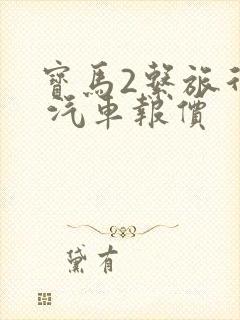 寶馬2繫旅行
汽車報價
黛有